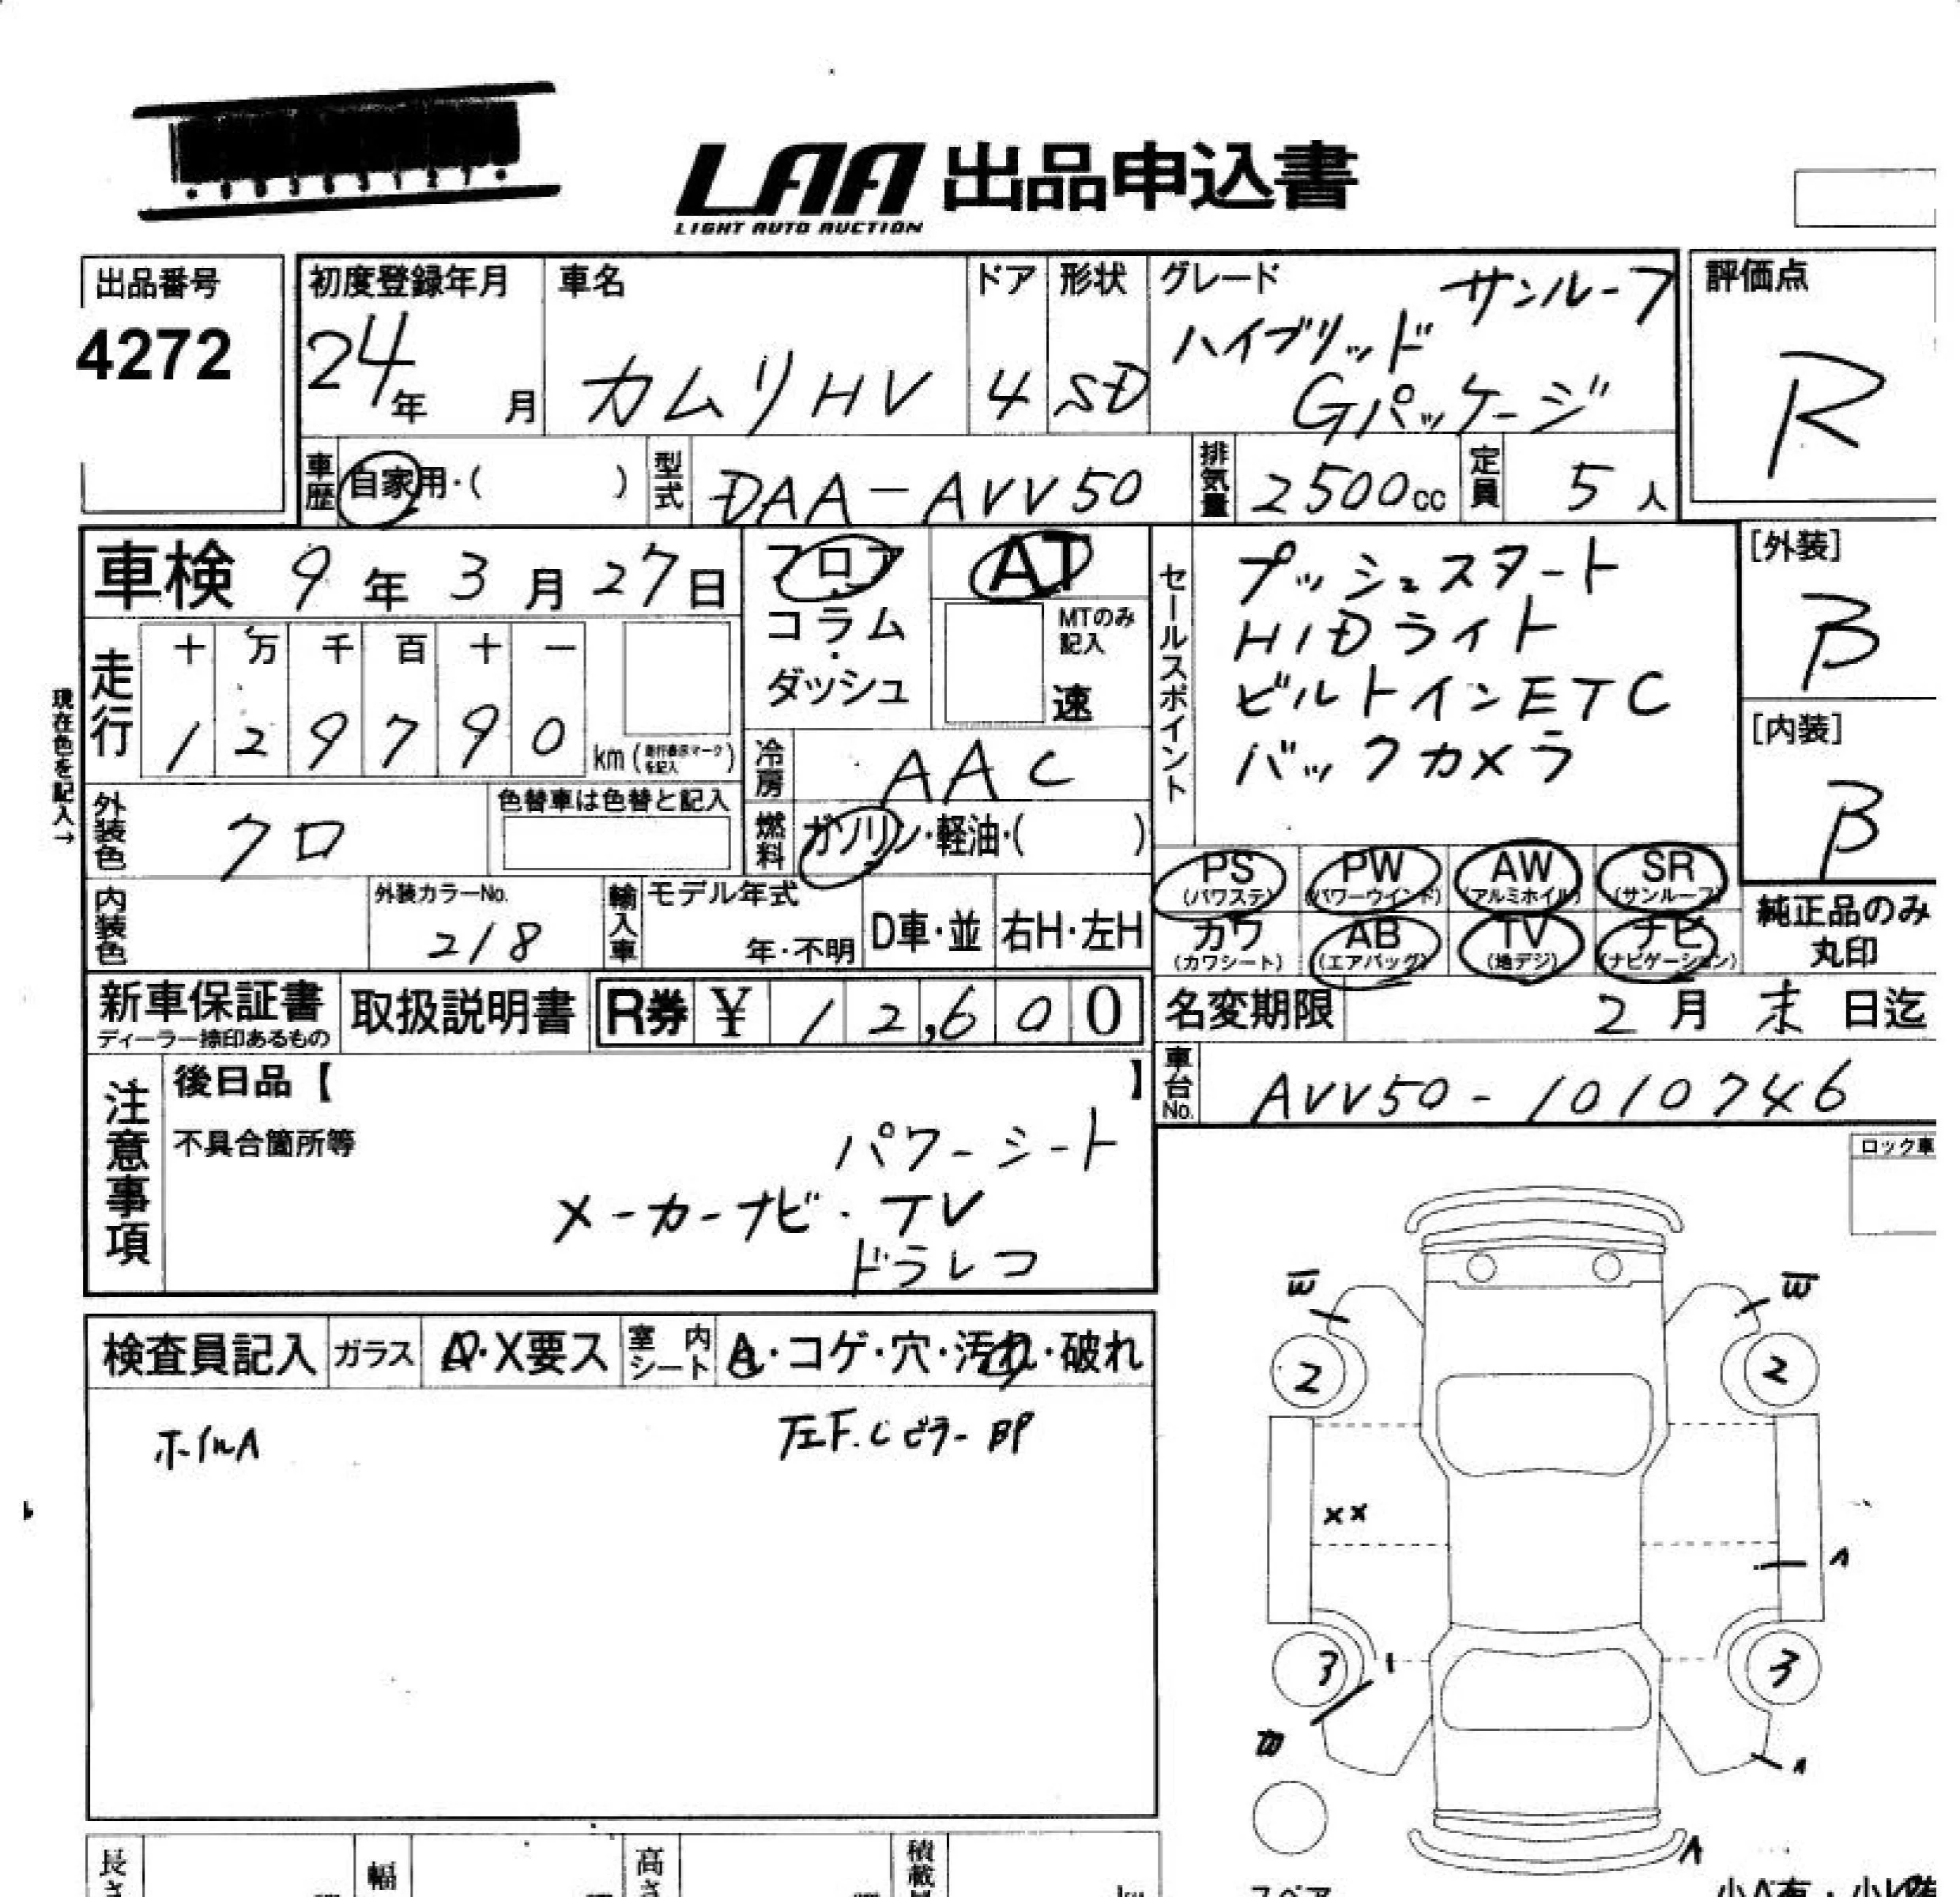 LAA 出品申込書
LIGHT AUTO AUCTION
出品番号
4272
初度登録年月
24年 月
車名
カムリHV
ドア
4
形状
SD
グレード
サンルーフ
ハイブリッド
Gパッケージ
評価点
R
車歴
自家用・( )
型式
DAA-AVV50
排気量
2500cc
定員
5人
車検 9年3月27日
フロア
コラム
・
ダッシュ
AT
MTのみ
記入
速
セールスポイント
プッシュスタート
HIDライト
ビルトインETC
バックカメラ
[外装]
B
[内装]
B
現在色を記入→
走行
十 万 千 百 十 一
1 2 9 7 9 0 km (走行表示マークを記入)
冷房
AAC
外装色
クロ
色替車は色替と記入
燃料
ガソリン・軽油・( )
PS
(パワステ)
PW
(パワーウインド)
AW
(アルミホイル)
SR
(サンルーフ)
カワ
(カワシート)
AB
(エアバッグ)
TV
(地デジ)
ナビ
(ナビゲーション)
純正品のみ
丸印
内装色
外装カラーNo.
218
輸入車
モデル年式
年・不明
D車・並
右H・左H
新車保証書
ディーラー捺印あるもの
取扱説明書
R券 ¥ 12,600
名変期限 2月末日迄
車台No.
AVV50-1010746
注意事項
後日品【 】
不具合箇所等
パワーシート
メーカーナビ・TV
ドラレコ
ロック車
検査員記入
ガラス
A・X要ス
室内シート
A・コゲ・穴・汚れ・破れ
ホイルA
左F.Cピラー BP
W
W
2
2
XX
A
3
3
W
A
A
長さ
幅
高さ
スペア